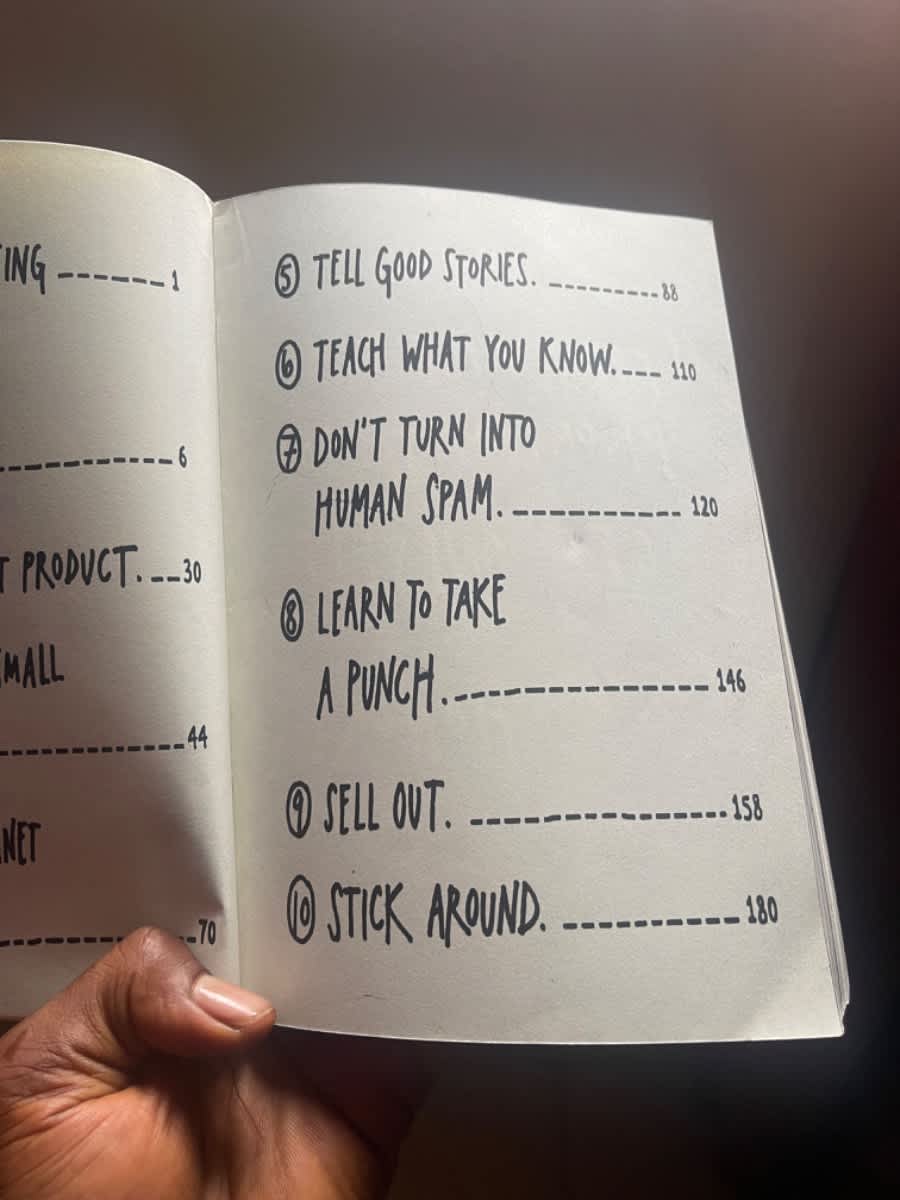 ING -------1
-------------6
PRODUCT. ---30
MALL
-------------44
NET
-------------70
⑤ TELL GOOD STORIES. ---------88
⑥ TEACH WHAT YOU KNOW. --- 110
⑦ DON'T TURN INTO
HUMAN SPAM. ----------- 120
⑧ LEARN TO TAKE
A PUNCH. --------------- 146
⑨ SELL OUT. ---------------158
⑩ STICK AROUND. ---------- 180